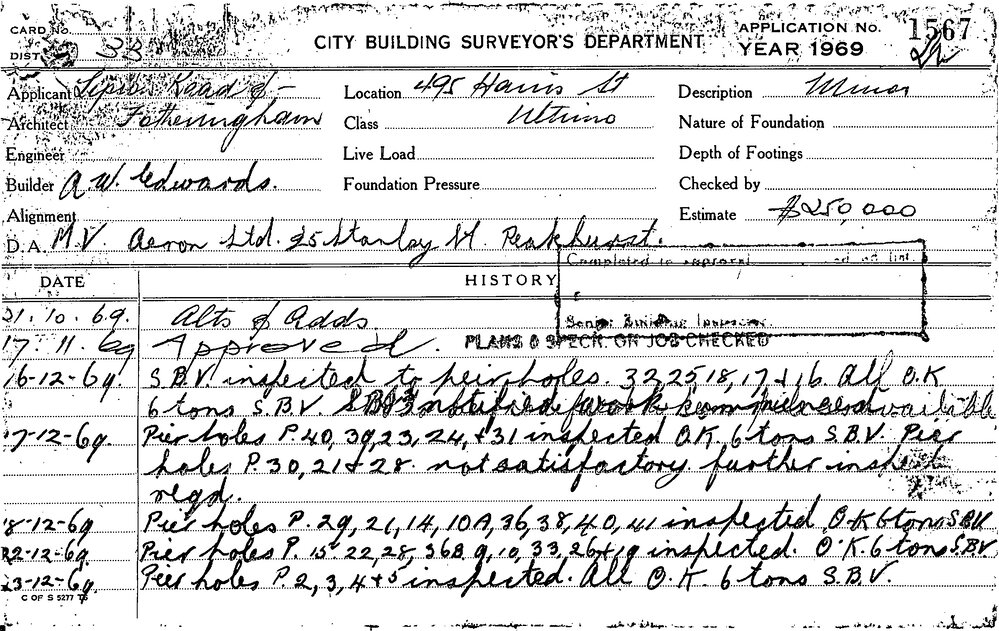 CARD No.
DIST 33
CITY BUILDING SURVEYOR'S DEPARTMENT
APPLICATION No. 1567
YEAR 1969
Applicant Road & Location 495 Harris St Description Minor
Architect Fotheringham Class Ultimo Nature of Foundation
Engineer Live Load Depth of Footings
Builder A.W. Edwards. Foundation Pressure Checked by
Alignment Estimate $250,000
D.A. M.V. Aeron Ltd. 25 Stanley St. Peakhurst.
Completed
DATE HISTORY
Senior Building Inspector
21.10.69. Alts & Adds
17.11.69 Approved. PLANS & SPECN. ON JOB CHECKED
16-12-69. S.B.V. inspected to peir holes. 32 25 18, 17 & 16. All O.K
6 tons S.B.V.
17-12-69. Pier holes P. 40, 39, 23, 24, & 31 inspected O.K. 6 tons S.B.V. Pier
holes P. 30, 21 & 28. not satisfactory further inspect
reqd.
18-12-69 Pier holes P. 29, 21, 14, 10A, 36, 38, 40, 41 inspected O.K 6 tons S.B.V
22-12-69. Pier holes P. 15 22, 28, 36B 9, 10, 33, 26 & 19 inspected. O.K. 6 tons S.B.V.
23-12-69. Pier holes P. 2, 3, 4 & 5 inspected. All O.K. 6 tons S.B.V.
C OF S 5277